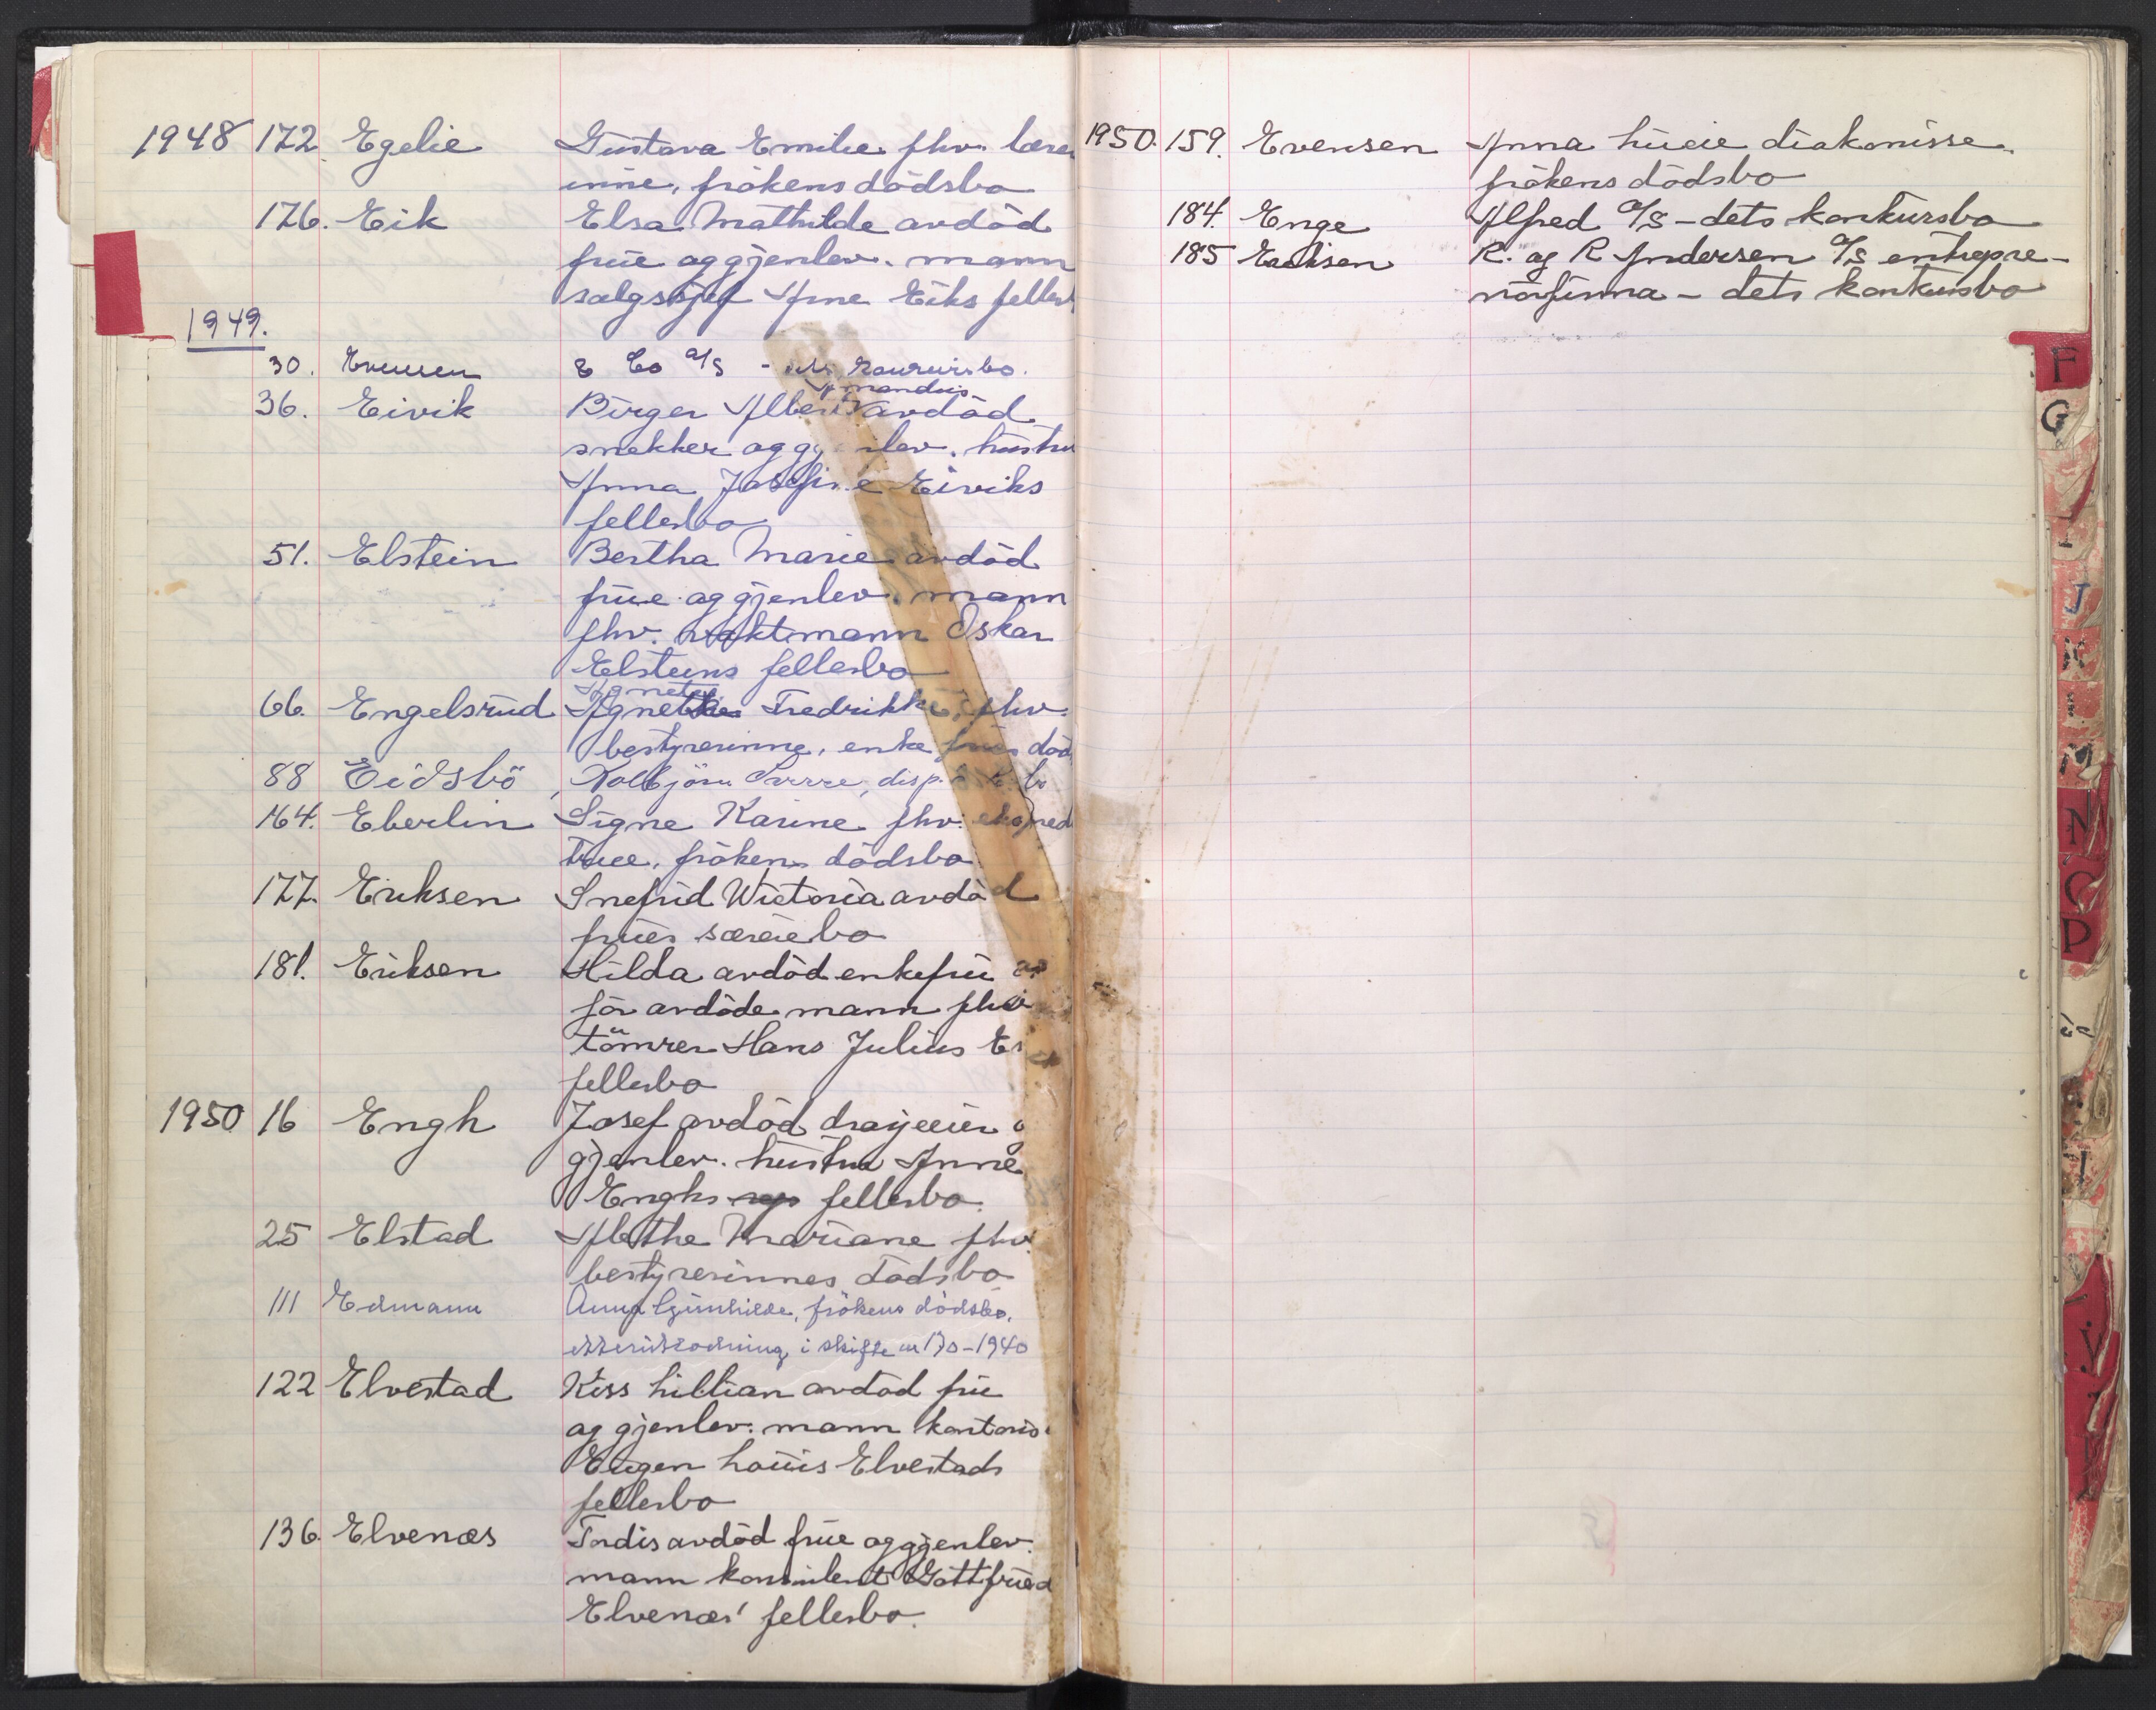 1948 172. Egelie Gustava Emilie fhv. lærer
inne, frökens dödsbo
176. Eik Elsa Mathilde avdöd
frue og gjenlev. mann
salgssjef Arne Eiks felles
1949.
30. Evensen & Co A/S - konkursbo.
Amandus
36. Eivik Birger Albert avdöd
snekker og gjenlev. hustru
Anna Josefine Eiviks
fellesbo
51. Elstein Bertha Marie avdöd
frue og gjenlev. mann
fhv. vaktmann Oskar
Elsteins fellesbo
Agnete
66. Engelsrud Fredrikke, fhv.
bestyrerinne, enkefrues död
88 Eidsbö, Kolbjörn Sverre, disp. bo
164. Eberlin Signe Karine fhv. eksped
true, frökens dödsbo
177. Eriksen Snefrid Wictoria avdöd
frues særeiebo
181. Eriksen Hilda avdöd enkefru og
för avdöde mann fhv
tömrer Hans Julius Er
fellesbo
1950 16 Engh Josef avdöd drosjeeier o
gjenlev. hustru Anne
Enghs fellesbo.
25 Elstad Alethe Mariane fhv.
bestyrerinnes dödsbo
111 Edmann Anna Gunhilde, frökens dödsbo,
etterutlodning i skifte nr 170-1940
122 Elvestad Kiss Lillian avdöd frue
og gjenlev. mann kontoris
Eugen Louis Elvestads
fellesbo
136. Elvenæs Tordis avdöd frue og gjenlev.
mann konsulent Gottfried
Elvenæs' fellesbo.
1950. 159. Evensen Anna Lucie diakonisse.
frökens dödsbo
184. Enge Alfred A/S - dets konkursbo
185 Eriksen R. og R Andersen A/S entrepre-
nörfirma - dets konkursbo
F
G
I
J
K
M
N
O
P
V